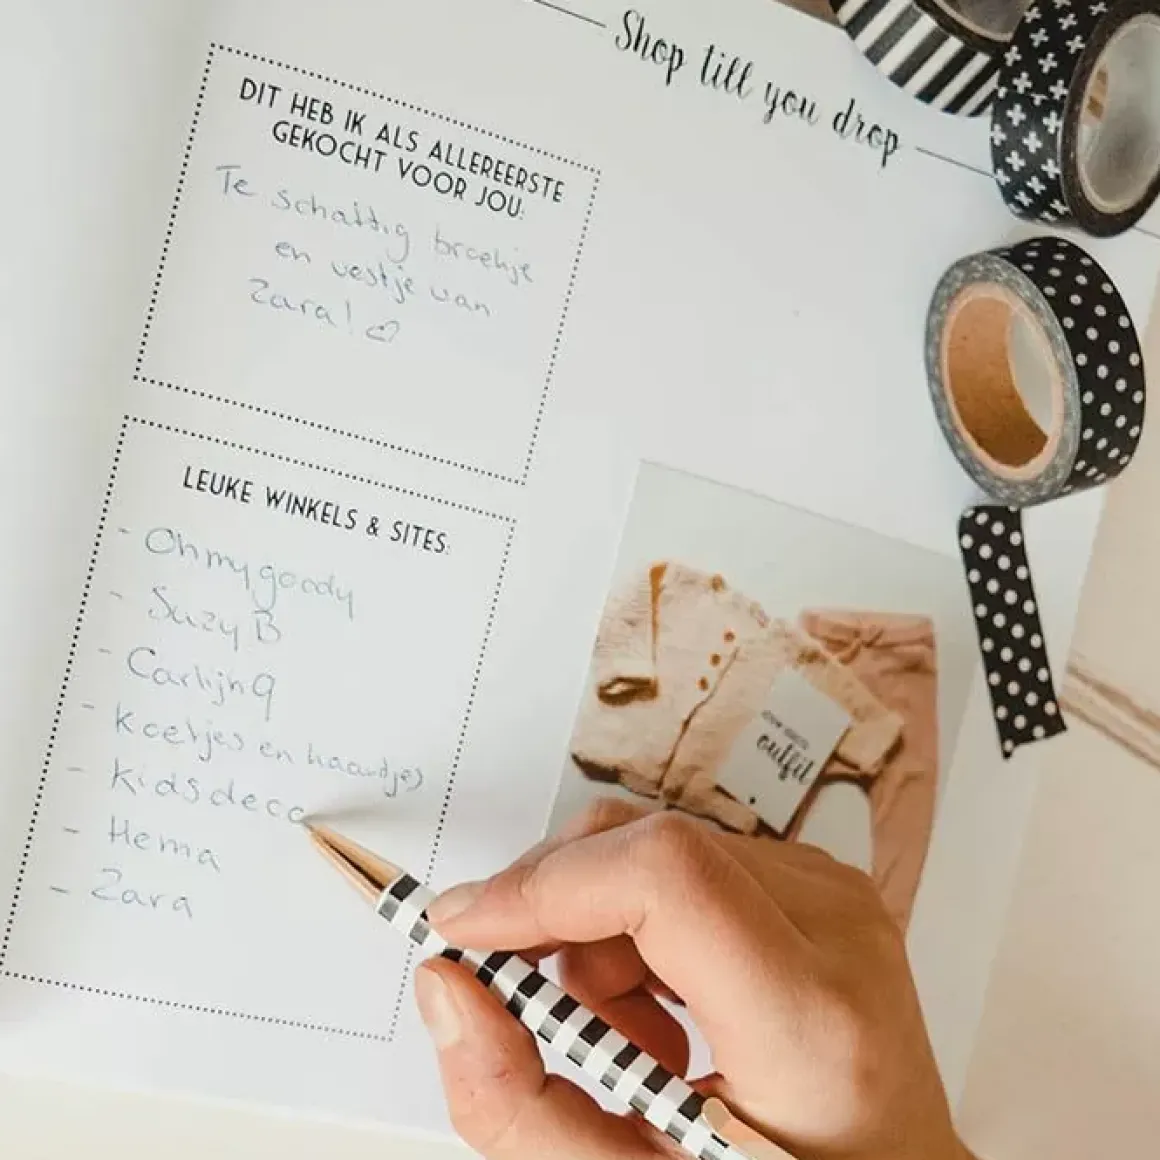 Shop till you drop
DIT HEB IK ALS ALLEREERSTE
GEKOCHT VOOR JOU:
Te schattig broekje
en vestje van
Zara! ♡
LEUKE WINKELS & SITES:
- Ohmygoody
- Suzy B
- Carlijnq
- Koetjes en haardjes
- Kidsdeco
- Hema
- Zara
outfit